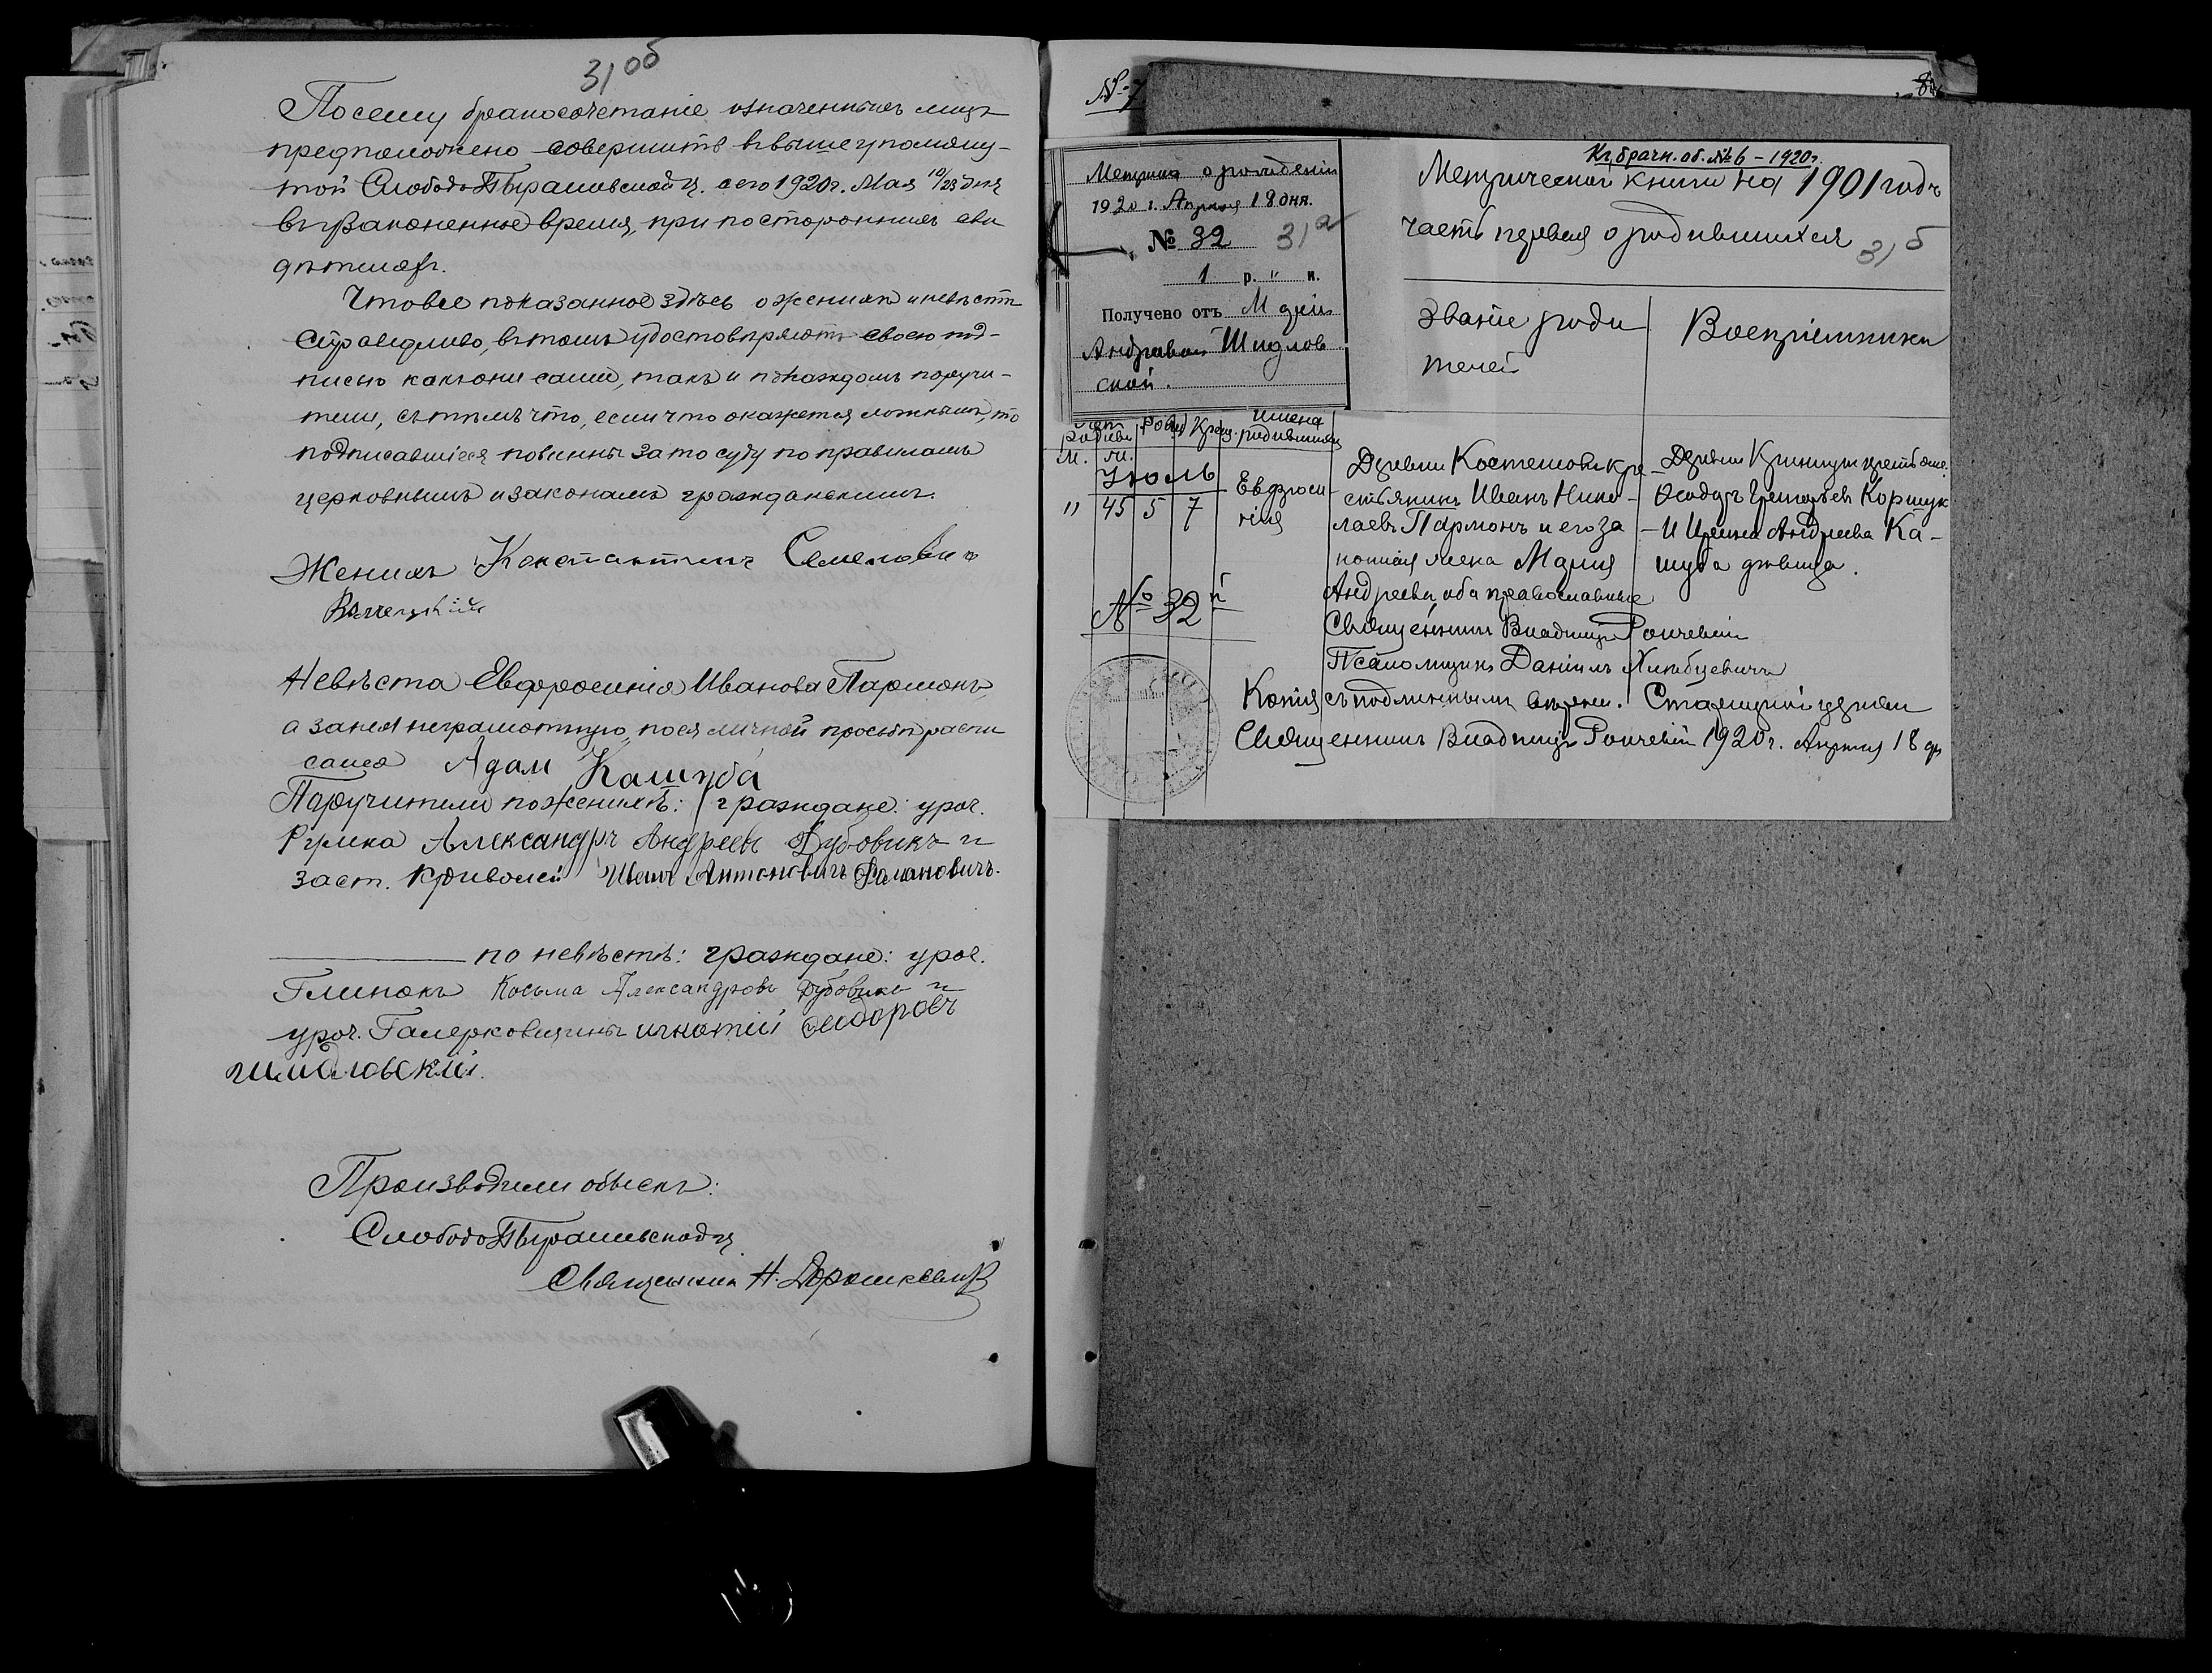 31 об
Посему бракосочетаніе означенныхъ лицъ
предположено совершить въ вышеупомяну-
той Слободо-Пырашевской ц. сего 1920 г. Мая 10/23 дня
въ узаконенное время, при постороннихъ сви
дѣтеляхъ.
Что все показанное здѣсь о женихѣ и невѣстѣ
справедливо, въ томъ удостовѣряютъ своею под-
писью какъ они сами, такъ и по каждомъ поручи-
тели, съ тѣмъ что, если что окажется ложнымъ, то
подписавшіеся повинны за то суду по правиламъ
церковнымъ и законамъ гражданскимъ.
Женихъ Константинъ Семеновичъ
Невѣста Евфросинія Ивановна Пармонъ,
а за нея неграмотную, по ея личной просьбѣ распи
сался Адам Кашуба
Поручители по женихѣ: граждане: уроч.
Александръ Андреевъ Дубовикъ и
заст. Криволей Иванъ Антоновичъ Романовичъ.
по невѣстѣ: граждане: уроч.
Глинокъ Косьма Александровъ Дубовикъ и
уроч. Галерковщины игнатій Федоровъ
шидловскій.
Производили обыскъ:
Слободо-Пырашевской ц.
Священникъ Н. Дорошкевичъ
№ 7
Метрика о рожденіи
1920 г. Апрѣля 18 дня.
№ 32 31а
1 р. " к.
Получено отъ Маріи
Андреевой Шидлов
ской.
Къ брачн. об. № 6 – 1920 г.
Метрической книги на 1901 годъ
часть первая о родившихся
31б
Званіе роди
телей
Воспріемники
Рожд. Крещ. имена
родившихся
М. Ж.
Іюль
" 45 5 7
Евфроси
нія
№ 32й
Деревни Костешовъ кре-
стьянинъ Иванъ Нико-
лаевъ Пармонъ и его за
конная жена Марія
Андреева, оба православные
Деревни Криницы крестьяне.
Ѳеодоръ Григорьевъ Коршук
и Ирина Андреева Ка-
шуба дѣвица.
Священникъ Владиміръ Рончевій
Псаломщикъ Даніилъ Хлѣбцевичъ
Копія съ подлиннымъ вѣрна. Старицкой церкви
Священникъ Владиміръ Рончевій 1920 г. Апрѣля 18 дн